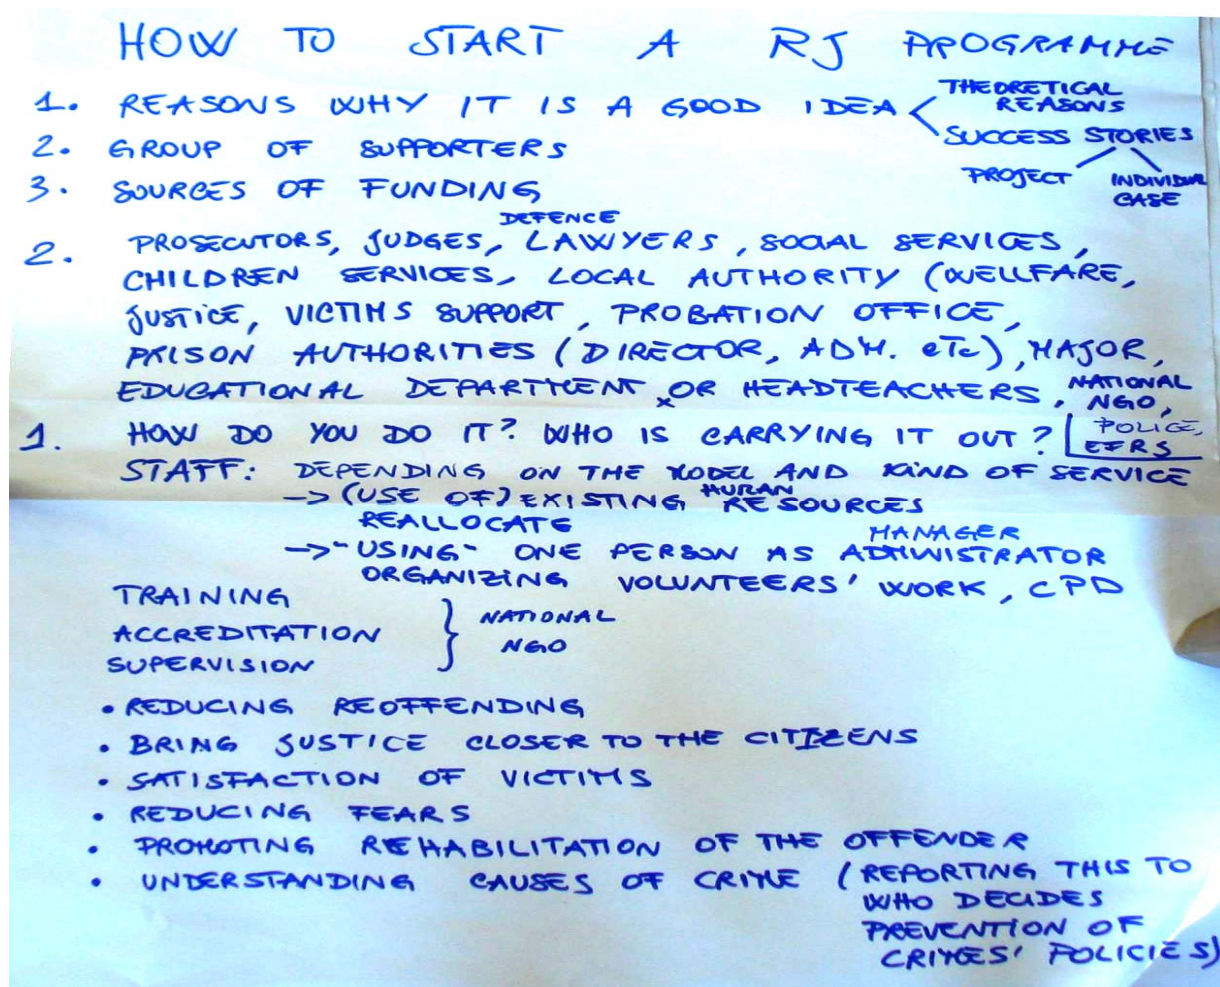 HOW TO START A RJ PROGRAMME
1. REASONS WHY IT IS A GOOD IDEA
THEORETICAL
REASONS
SUCCESS STORIES
PROJECT
INDIVIDUAL
CASE
2. GROUP OF SUPPORTERS
3. SOURCES OF FUNDING
DEFENCE
2. PROSECUTORS, JUDGES, LAWYERS, SOCIAL SERVICES,
CHILDREN SERVICES, LOCAL AUTHORITY (WELLFARE,
JUSTICE, VICTIMS SUPPORT, PROBATION OFFICE,
PRISON AUTHORITIES (DIRECTOR, ADM. eTc), MAJOR,
EDUCATIONAL DEPARTMENT OR HEADTEACHERS, NATIONAL
NGO,
POLICE,
EFRS
1. HOW DO YOU DO IT? WHO IS CARRYING IT OUT?
STAFF: DEPENDING ON THE MODEL AND KIND OF SERVICE
-> (USE OF) EXISTING HUMAN RESOURCES
REALLOCATE
MANAGER
-> "USING" ONE PERSON AS ADMINISTRATOR
ORGANIZING VOLUNTEERS' WORK, CPD
TRAINING
ACCREDITATION
SUPERVISION
} NATIONAL
NGO
• REDUCING REOFFENDING
• BRING JUSTICE CLOSER TO THE CITIZENS
• SATISFACTION OF VICTIMS
• REDUCING FEARS
• PROMOTING REHABILITATION OF THE OFFENDER
• UNDERSTANDING CAUSES OF CRIME (REPORTING THIS TO
WHO DECIDES
PREVENTION OF
CRIMES' POLICIES)